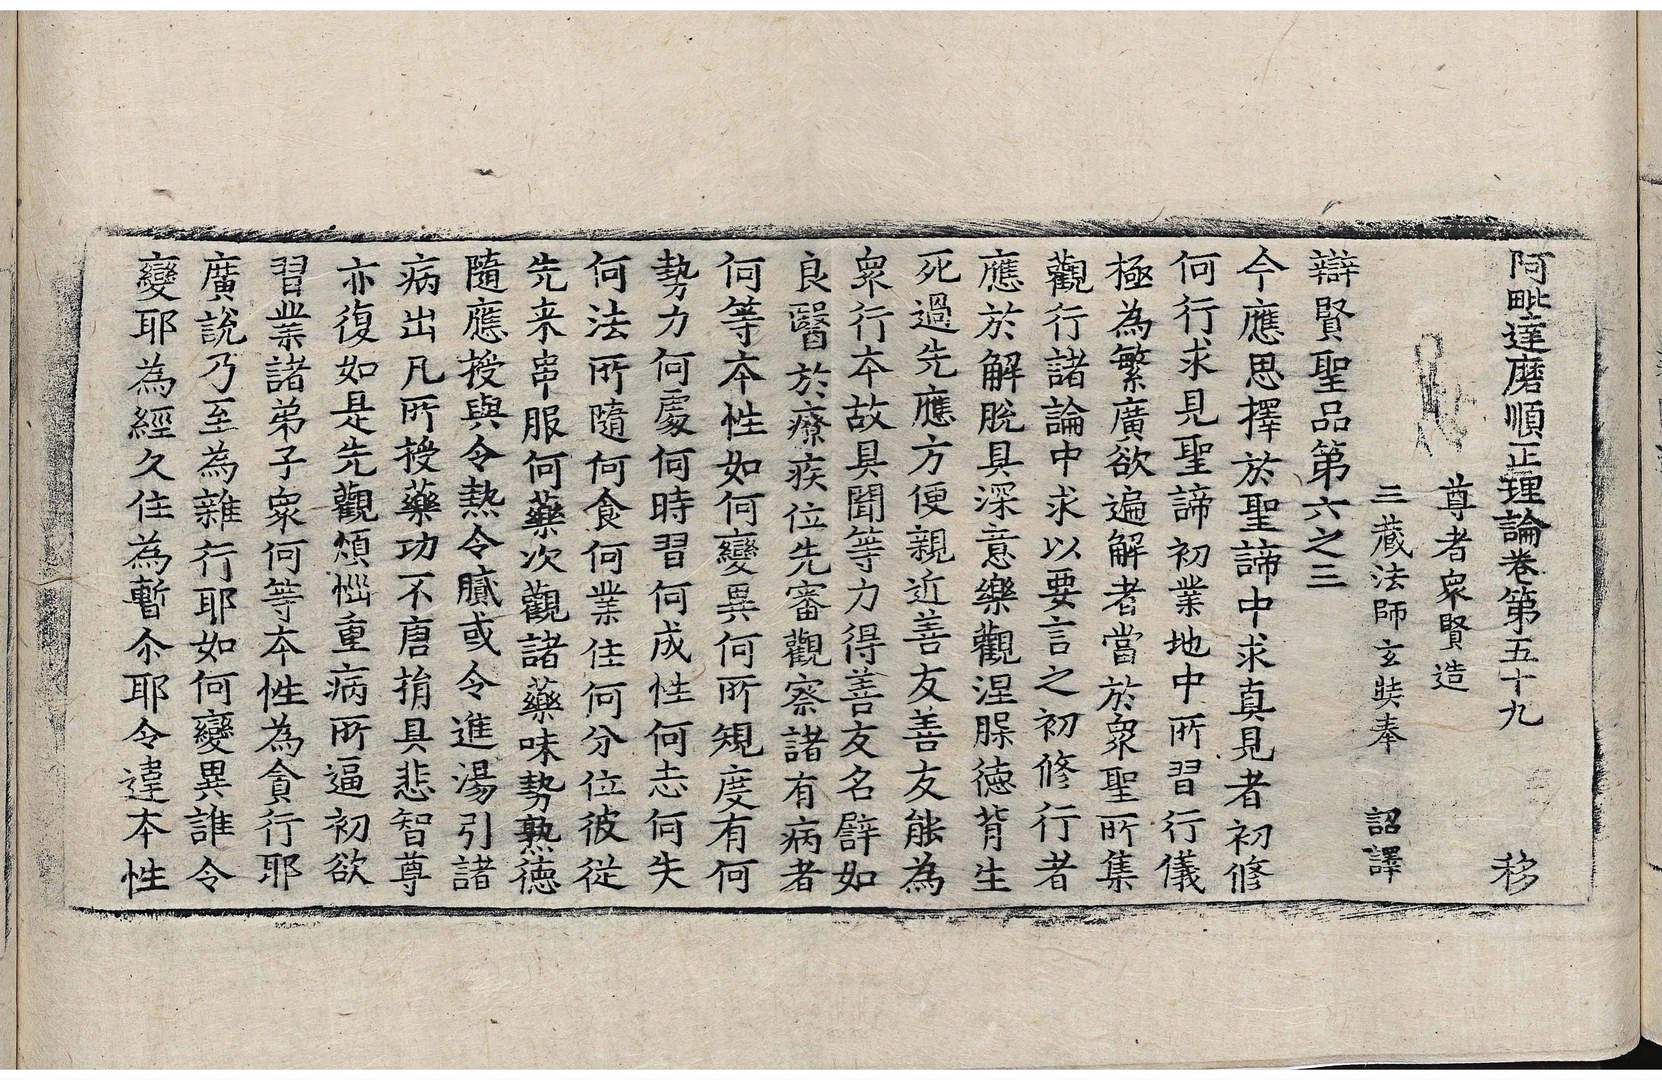 阿毗達磨順正理論卷第五十九 移
尊者衆賢造
三藏法師玄奘奉 詔譯
辯賢聖品第六之三
今應思擇於聖諦中求真見者初修
何行求見聖諦初業地中所習行儀
極為繁廣欲遍解者當於衆聖所集
觀行諸論中求以要言之初修行者
應於解脫具深意樂觀涅槃德背生
死過先應方便親近善友善友能為
衆行本故具聞等力得善友名譬如
良醫於療疾位先審觀察諸有病者
何等本性如何變異何所規度有何
勢力何處何時習何成性何志何失
何法所隨何食何業住何分位彼從
先来串服何藥次觀諸藥味勢熟德
隨應授與令熱令膩或令進湯引諸
病出凡所授藥功不唐捐具悲智尊
亦復如是先觀煩惱重病所逼初欲
習業諸弟子衆何等本性為貪行耶
廣說乃至為雜行耶如何變異誰令
變耶為經久住為暫尒耶令違本性